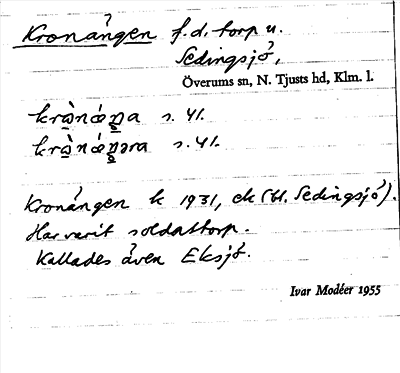 Kronängen f.d. torp u.
Sedingsjö,
Överums sn, N. Tjusts hd, Klm. l.
s. 41.
s. 41.
Kronängen k 1931, ek (bl. Sedingsjö).
Har varit soldattorp.
Kallades även Eksjö.
Ivar Modéer 1955